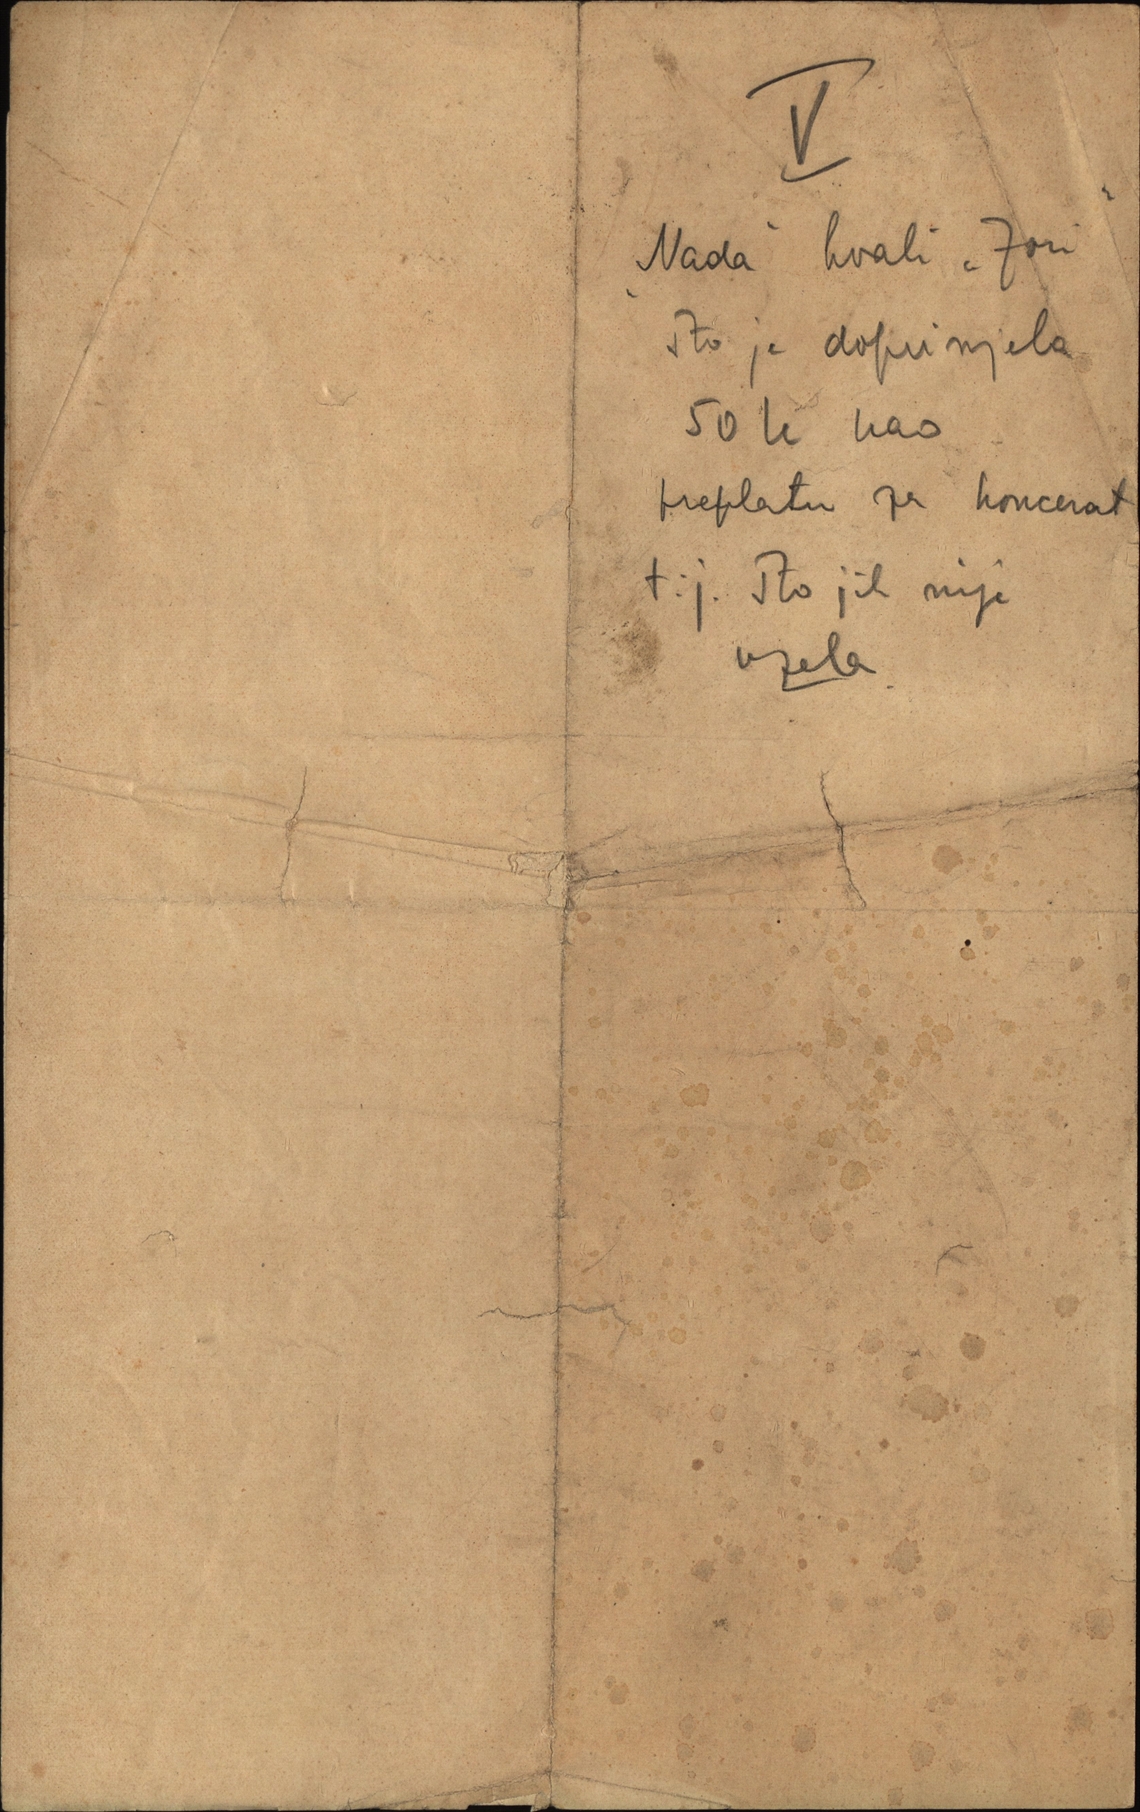 V
„Nada“ hvali „Zori“
što je doprinjela
50 K kao
preplatu za koncerat
t.j. što jih nije
uzela